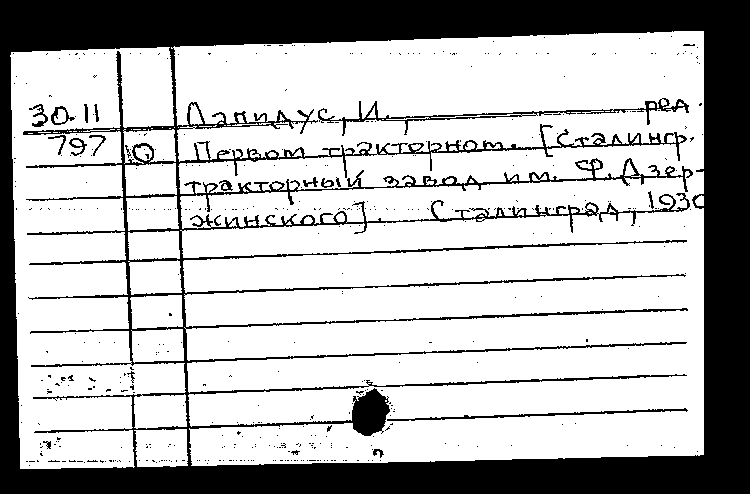 30.11 Лапидус, И., ред.
797 О Первом тракторном. [Сталингр.
тракторный завод им. Ф. Дзер-
жинского]. Сталинград, 1930